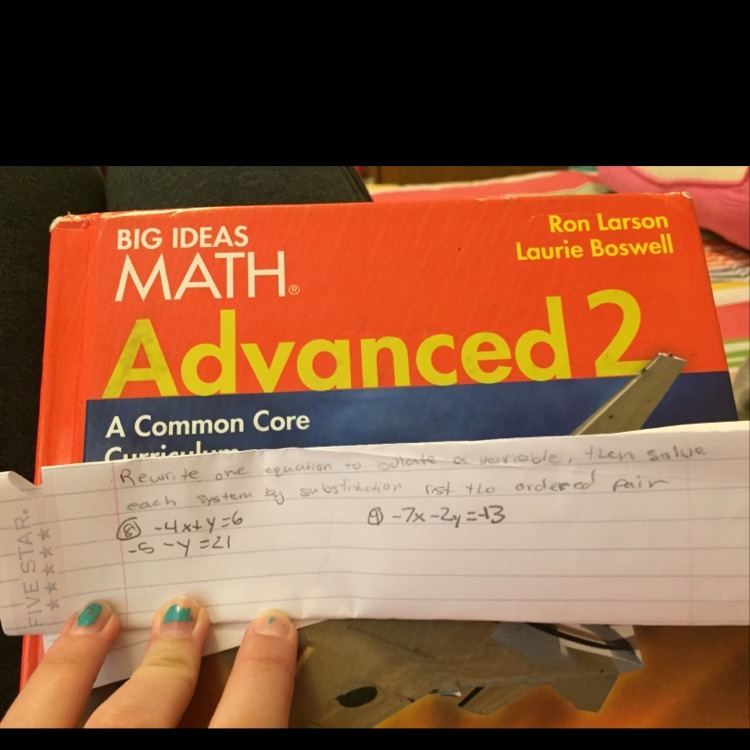 BIG IDEAS
MATH®
Ron Larson
Laurie Boswell
Advanced 2
A Common Core
Curriculum
FIVE STAR.
Rewrite one equation to isolate a variable, then solve
each system by substitution list the ordered pair
8) -4x+y=6
-5 -y =21
9) -7x-2y=-13